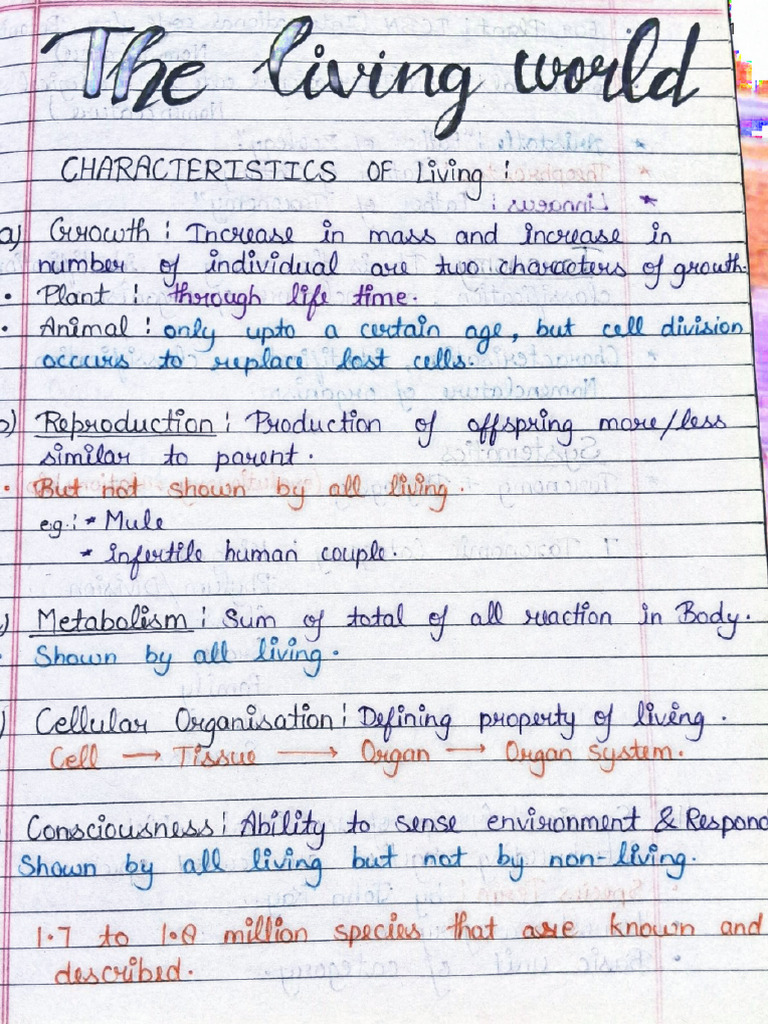 The living world
CHARACTERISTICS OF living :
a) Growth : Increase in mass and increase in
number of individual are two characters of growth.
• Plant : through life time.
• Animal : only upto a certain age, but cell division
occurs to replace lost cells.
b) Reproduction : Production of offspring more/less
similar to parent.
• But not shown by all living.
eg.: * Mule
* infertile human couple.
) Metabolism : Sum of total of all reaction in Body.
Shown by all living.
) Cellular Organisation : Defining property of living.
Cell → Tissue → Organ → Organ system.
Consciousness : Ability to sense environment & Respond
Shown by all living but not by non-living.
1.7 to 1.8 million species that are known and
described.